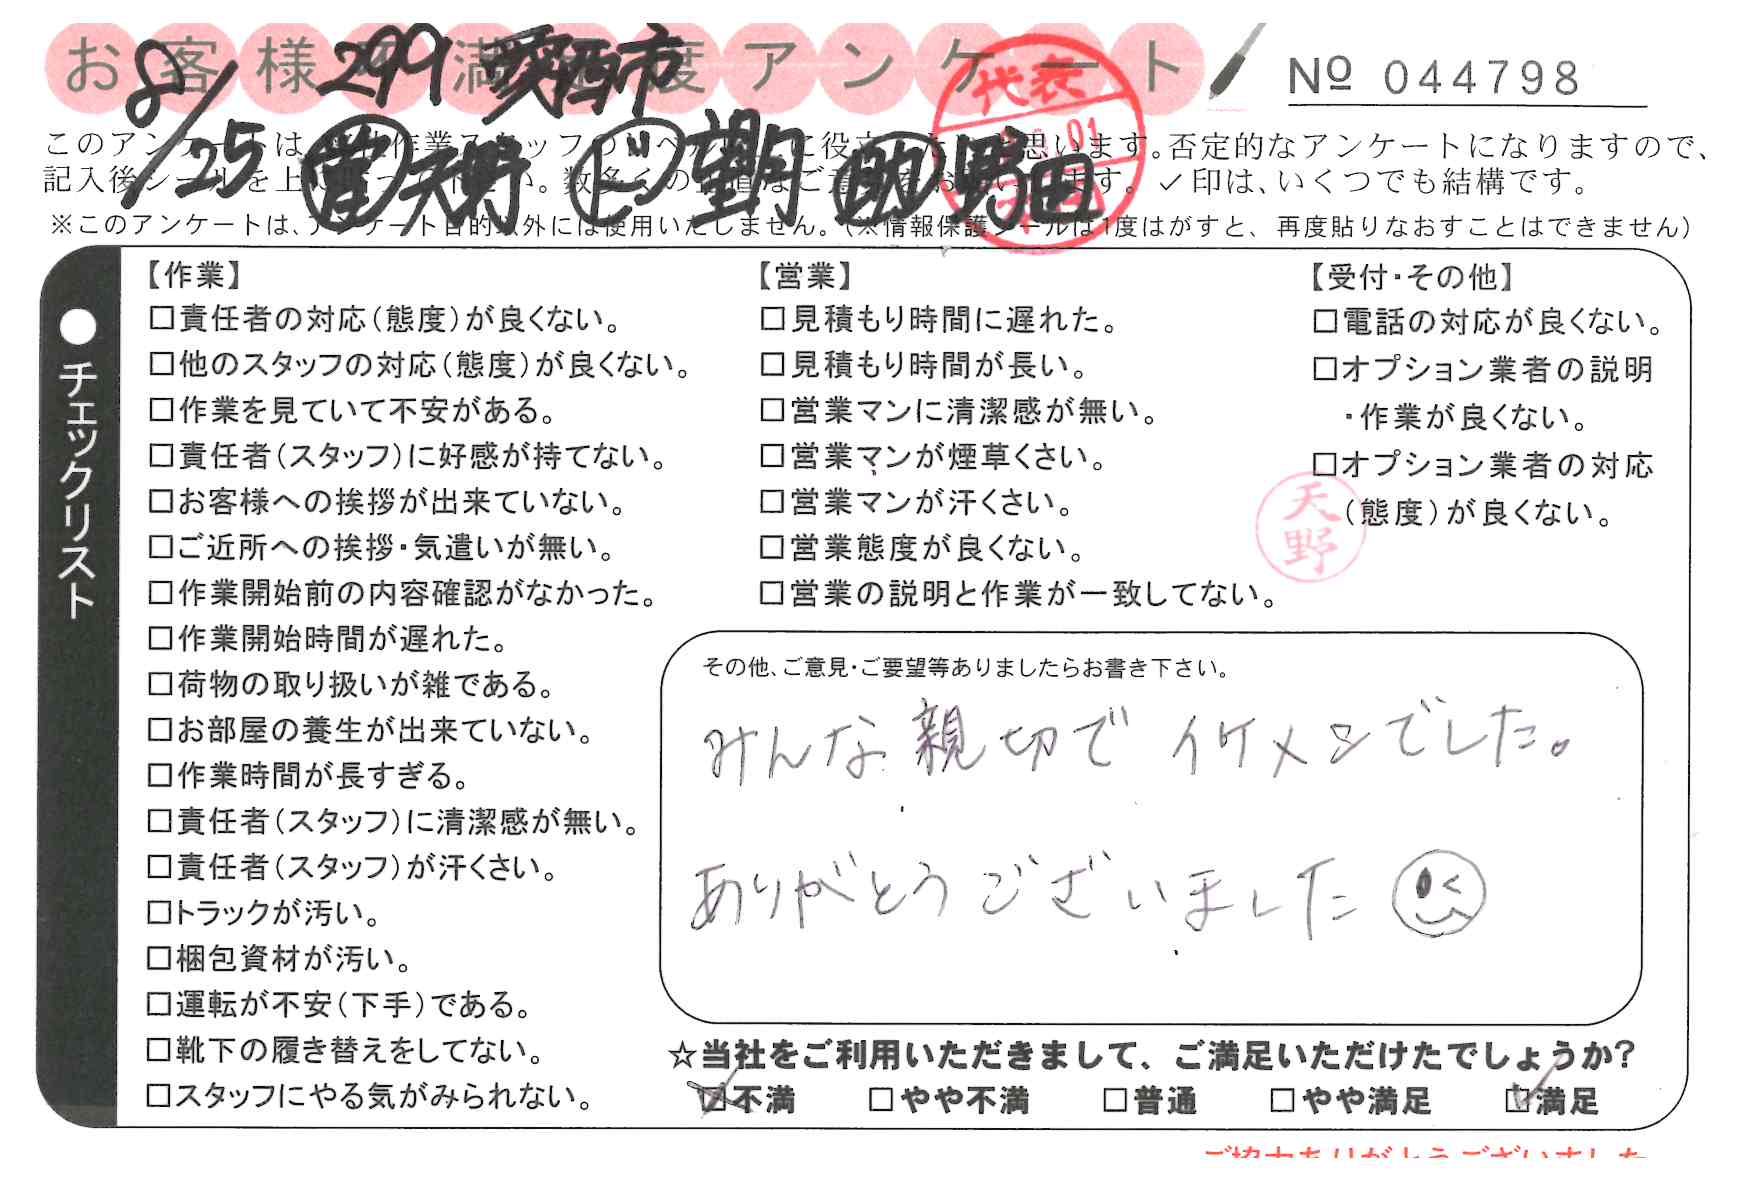 お客様満足度アンケート
№ 044798
8/25 299 愛西市
天野 望月 助 野田
代表
01
このアンケートは、作業スタッフのに役立思います。否定的なアンケートになりますので、
記入後シールを上い。数多くのご意見をお願います。✓印は、いくつでも結構です。
※このアンケートは、アンケート目的以外には使用いたしません。(※情報保護シールは1度はがすと、再度貼りなおすことはできません)
●チェックリスト
【作業】
□責任者の対応(態度)が良くない。
□他のスタッフの対応(態度)が良くない。
□作業を見ていて不安がある。
□責任者(スタッフ)に好感が持てない。
□お客様への挨拶が出来ていない。
□ご近所への挨拶・気遣いが無い。
□作業開始前の内容確認がなかった。
□作業開始時間が遅れた。
□荷物の取り扱いが雑である。
□お部屋の養生が出来ていない。
□作業時間が長すぎる。
□責任者(スタッフ)に清潔感が無い。
□責任者(スタッフ)が汗くさい。
□トラックが汚い。
□梱包資材が汚い。
□運転が不安(下手)である。
□靴下の履き替えをしてない。
□スタッフにやる気がみられない。
【営業】
□見積もり時間に遅れた。
□見積もり時間が長い。
□営業マンに清潔感が無い。
□営業マンが煙草くさい。
□営業マンが汗くさい。
□営業態度が良くない。
□営業の説明と作業が一致してない。
【受付・その他】
□電話の対応が良くない。
□オプション業者の説明
・作業が良くない。
□オプション業者の対応
(態度)が良くない。
天野
その他、ご意見・ご要望等ありましたらお書き下さい。
みんな親切でイケメンでした。
ありがとうございました
☆当社をご利用いただきまして、ご満足いただけたでしょうか?
□不満 □やや不満 □普通 □やや満足 □満足
ご協力ありがとうございました